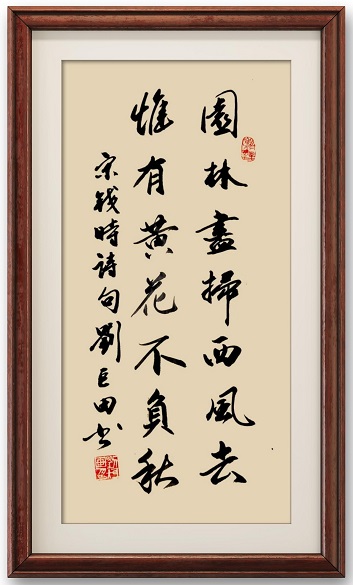 園林盡掃西風去
惟有黃花不負秋
宋錢時詩句劉巨田书